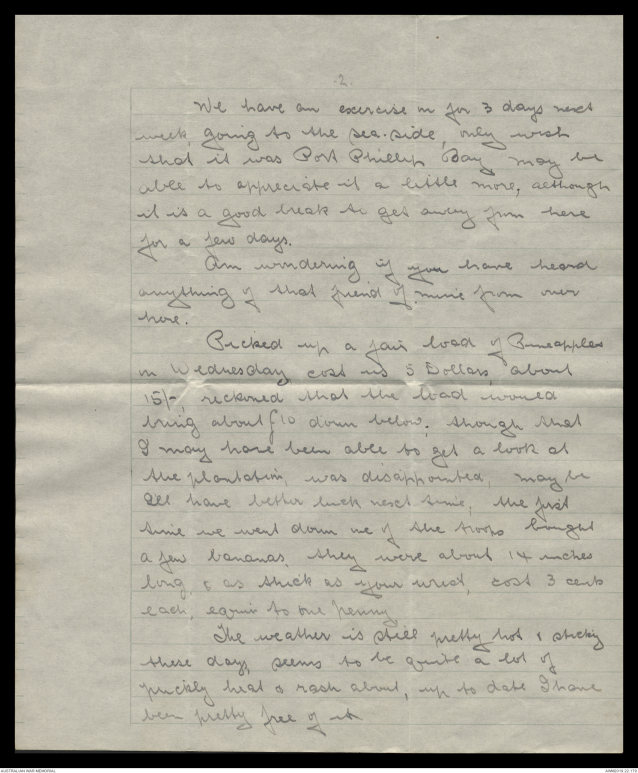 2.
We have an exercise on for 3 days next
week, going to the sea-side, only wish
that it was Port Phillip Bay, may be
able to appreciate it a little more, although
it is a good break to get away from here
for a few days.
Am wondering if you have heard
anything of that friend of mine from over
here.
Picked up a fair load of Pineapples
on Wednesday, cost us 5 Dollars, about
15/-, reckoned that the load would
bring about £10 down below, though that
I may have been able to get a look at
the plantation, was disappointed, may be
Ill have better luck next time, the first
time we went down one of the troops bought
a few bananas, they were about 14 inches
long, & as thick as your wrist, cost 3 cents
each, equiv to one penny
The weather is still pretty hot & sticky
these days, seems to be quite a lot of
prickly heat & rash about, up to date I have
been pretty free of it
AUSTRALIAN WAR MEMORIAL